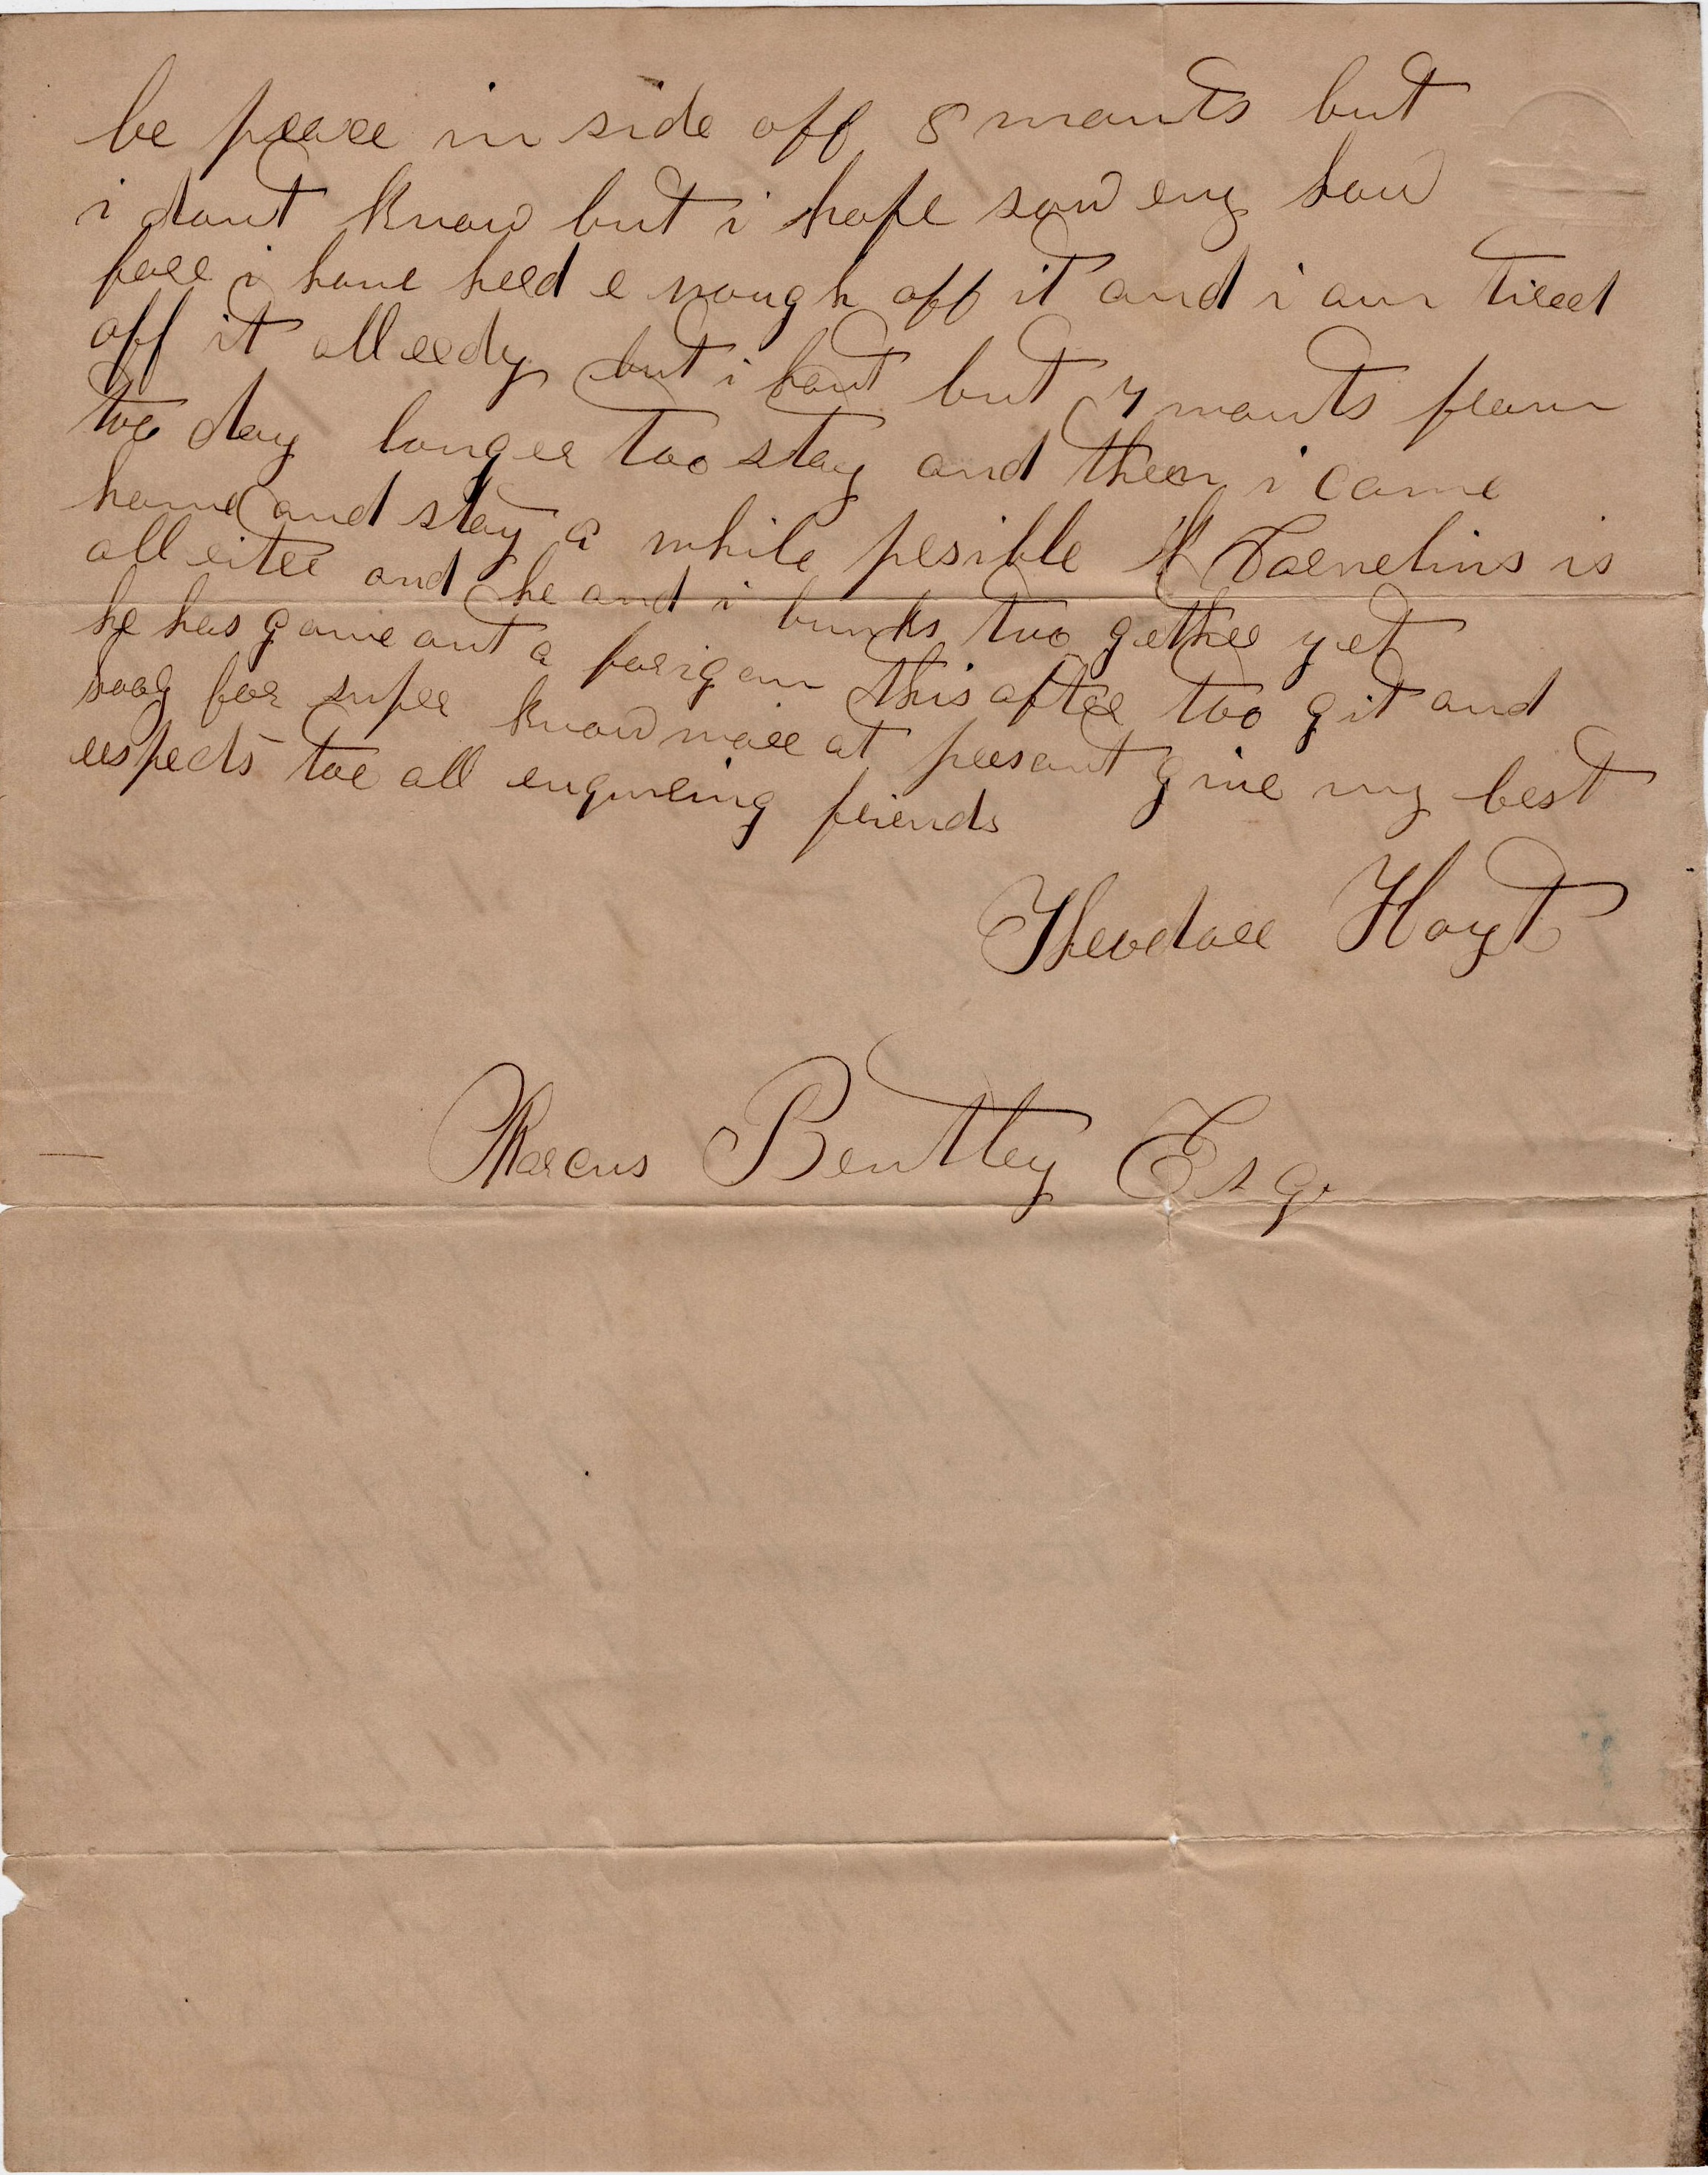 be peace in side off 8 monts but
i dont know but i hope sow eny how
fore i have hed e nough off it and i am tired
off it all redy but i hant but 7 monts from
two day longer too stay and then i come
home and stay a while posible Cornelius is
all rite and he and i bunks too gether yet
he has gone out a forigen this after too git and
hoag for super know more at presant give my best
respects toe all enqureing friends
Theodore Hoyt
Marcus Bentley Esq